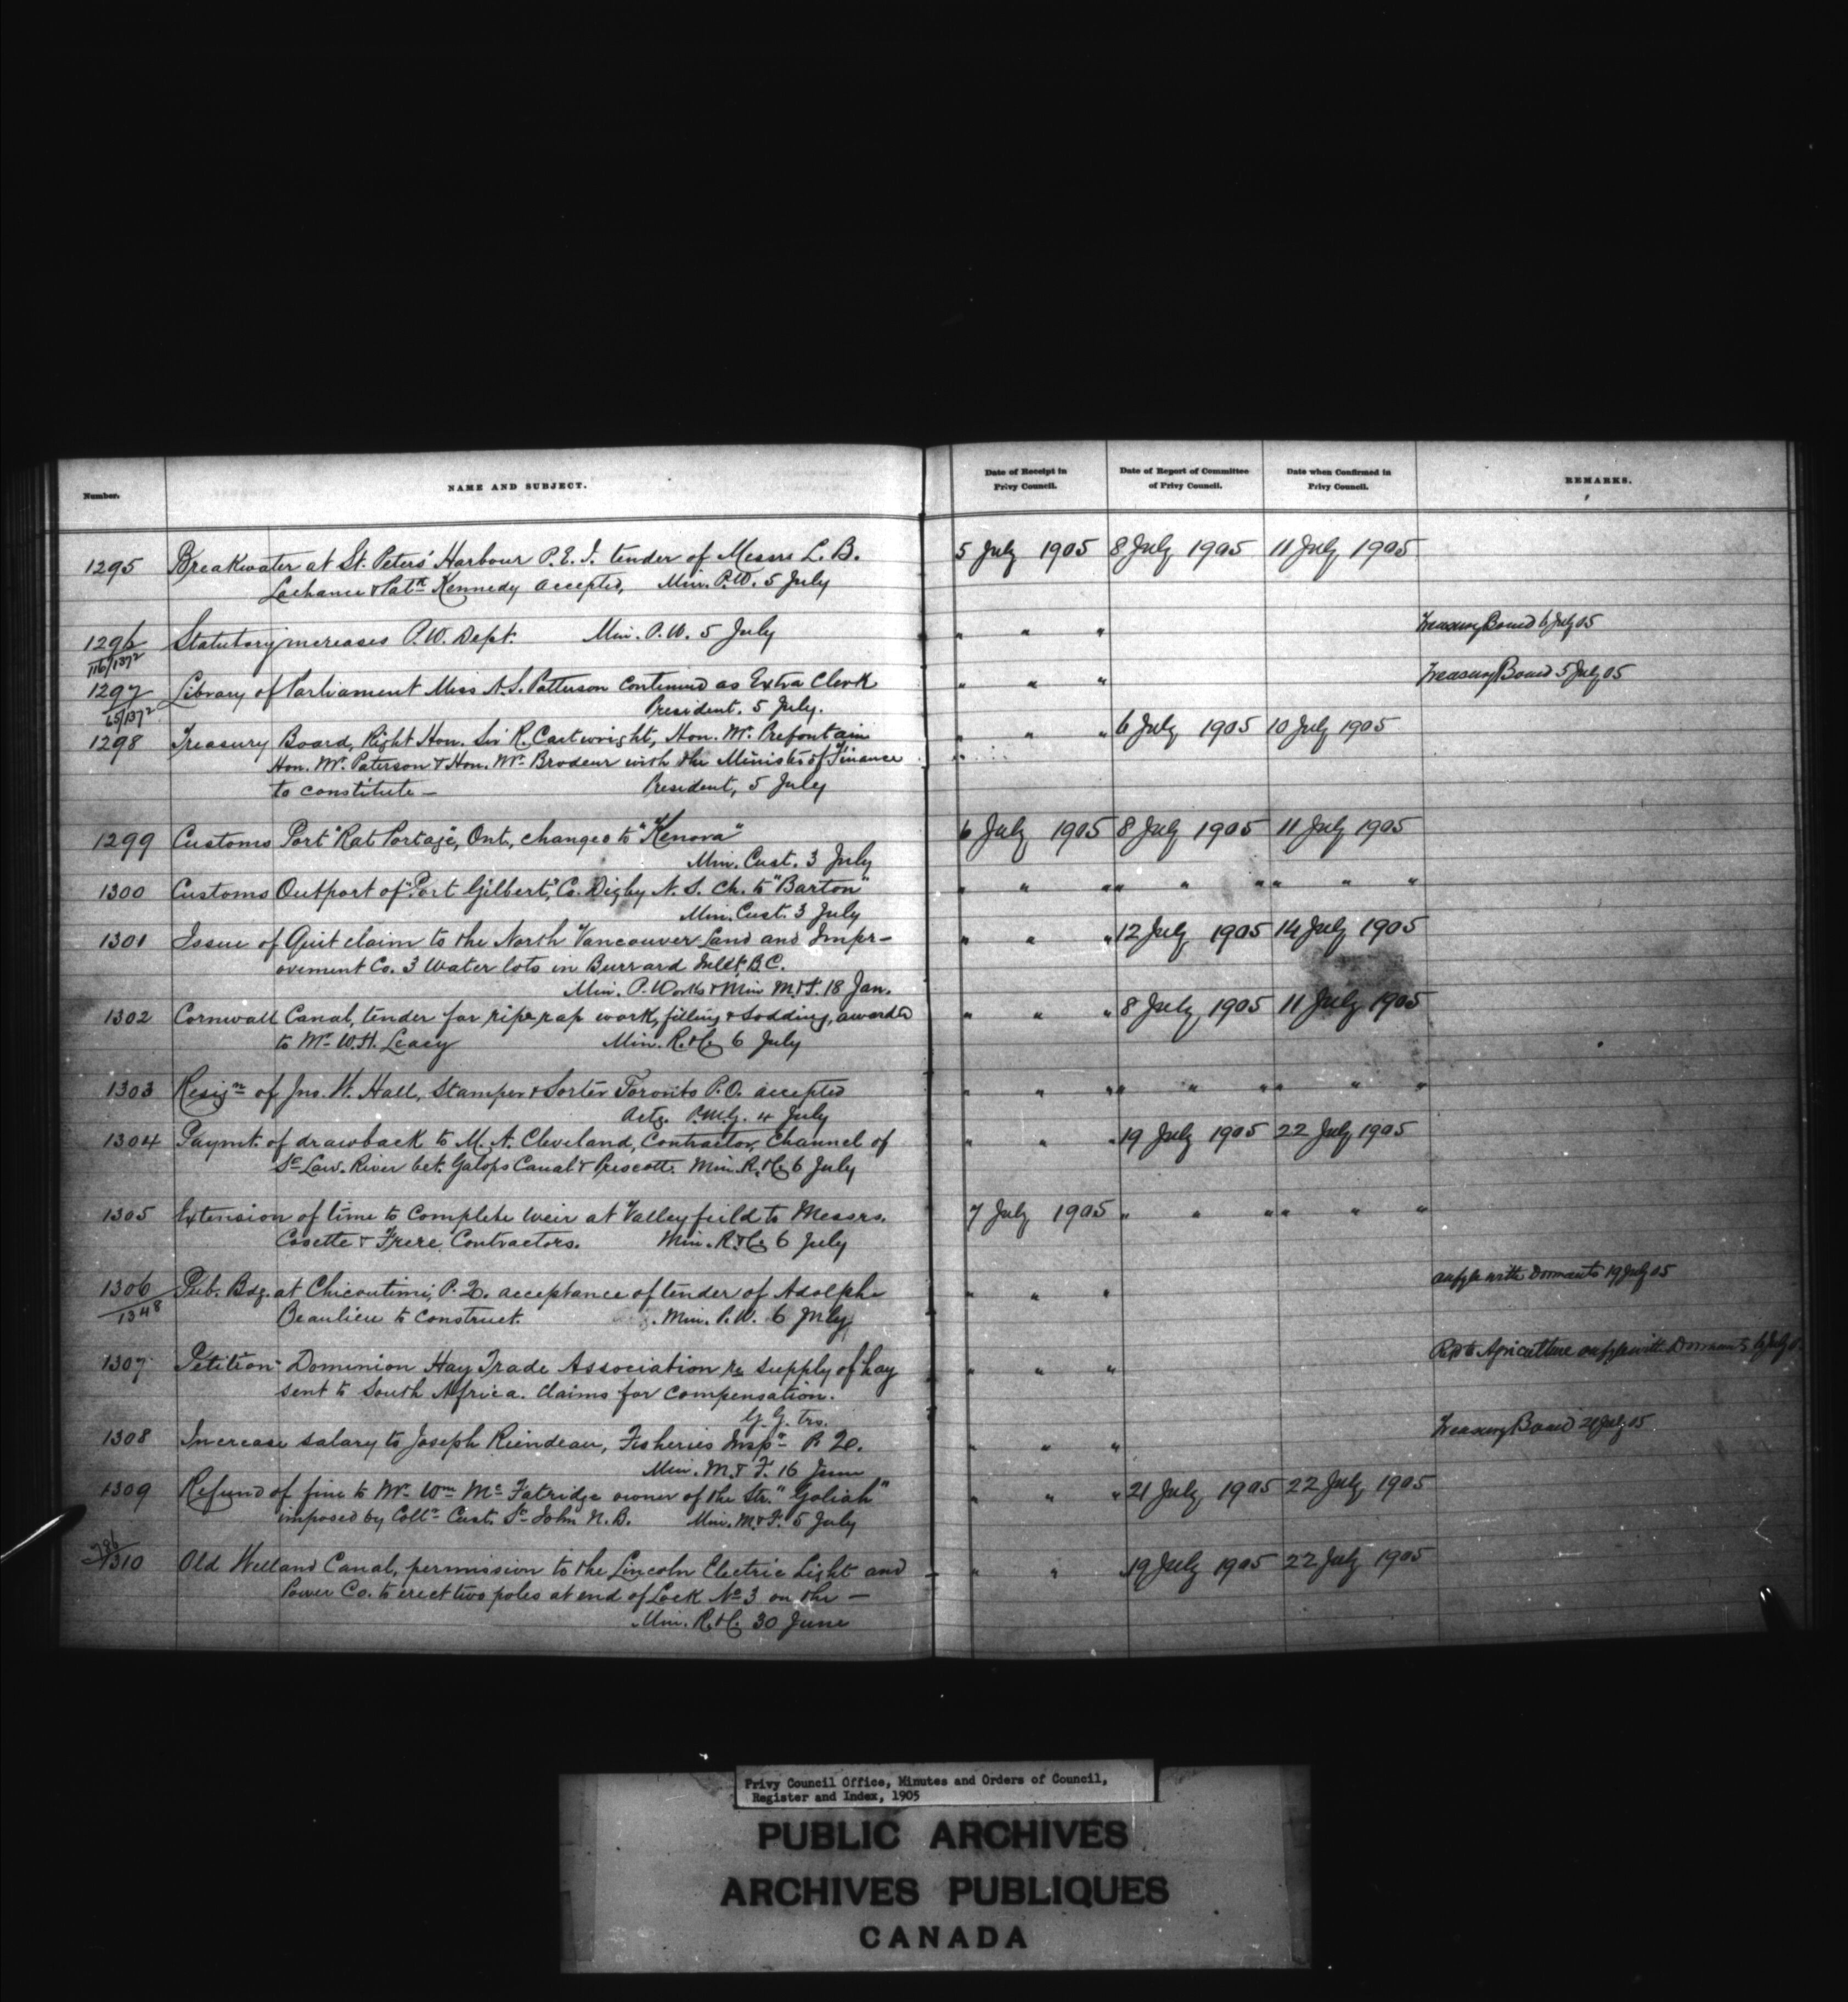 Number.
NAME AND SUBJECT.
Date of Receipt in Privy Council.
Date of Report of Committee of Privy Council.
Date when Confirmed in Privy Council.
REMARKS.
1295 Breakwater at St. Peters' Harbour P.E.I. tender of Messrs L. B. 5 July 1905 8 July 1905 11 July 1905
Lachance & Patk Kennedy accepted, Min. P.W. 5 July
1296 Statutory increases P.W. Dept. Min. P.W. 5 July " " " Treasury Board 6 July 05
116/1372
1297 Library of Parliament Miss A.S. Patterson continued as Extra Clerk " " " Treasury Board 5 July 05
65/1372 President. 5 July.
1298 Treasury Board, Right Hon. Sir R. Cartwright, Hon. Mr. Prefontain " " " 6 July 1905 10 July 1905
Hon. Mr. Paterson & Hon. Mr. Brodeur with the Minister of Finance
to constitute — President, 5 July
1299 Customs Port "Rat Portage", Ont., changed to "Kenora" 6 July 1905 8 July 1905 11 July 1905
Min. Cust. 3 July
1300 Customs Outport of "Port Gilbert", Co. Digby N.S. ch. to "Barton" " " " " " " " " "
Min. Cust. 3 July
1301 Issue of Quit claim to the North Vancouver Land and Impr- " " " 12 July 1905 14 July 1905
ovement Co. 3 water lots in Burrard Inlet, B.C.
Min. P. Works & Min M.&F. 18 Jan.
1302 Cornwall Canal, tender for rip rap work, filling & sodding, awarded " " " 8 July 1905 11 July 1905
to Mr. W.H. Leacy Min. R.&C. 6 July
1303 Resign of Jno. W. Hall, Stamper & Sorter Toronto P.O. accepted " " " " " " " " "
Actg. P.M.G. 4 July
1304 Paymt. of drawback to M. A. Cleveland, Contractor, Channel of " " " 19 July 1905 22 July 1905
St Law. River bet. Galops Canal & Prescott. Min. R.&C. 6 July
1305 Extension of time to complete weir at Valleyfield to Messrs. 7 July 1905 " " " " " "
Cosette & Frere, Contractors. Min. R.&C. 6 July
1306 Pub. Bdg. at Chicoutimi, P.Q. acceptance of tender of Adolphe " " " with Dormants 19 July 05
1348 Beaulieu to construct. Min. P.W. 6 July
1307 Petition - Dominion Hay Trade Association re supply of hay " " " Refd to Agriculture with Dormants
sent to South Africa. Claims for compensation.
G. G. trs.
1308 Increase salary to Joseph Riendeau, Fisheries Inspr P.Q. " " " Treasury Board 21 July 05
Min. M.& F. 16 June
1309 Refund of fine to Mr. Wm Mc Fatridge owner of the Str. "Goliah" " " " 21 July 1905 22 July 1905
imposed by Collr Cust. St John N.B. Min. M.&F. 5 July
1310 Old Welland Canal, permission to the Lincoln Electric Light and " " 19 July 1905 22 July 1905
Power Co. to erect two poles at end of Lock No 3 on the —
Min. R.&C. 30 June
Privy Council Office, Minutes and Orders of Council,
Register and Index, 1905
PUBLIC ARCHIVES
ARCHIVES PUBLIQUES
CANADA